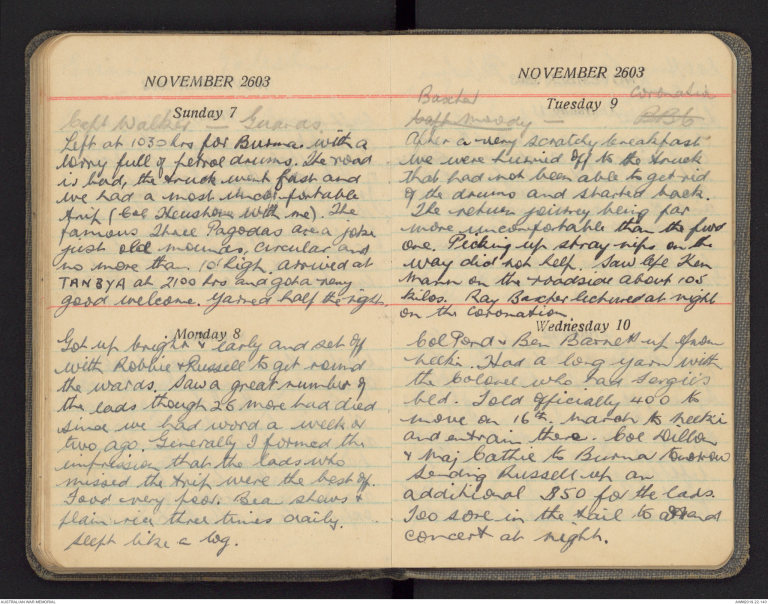 NOVEMBER 2603
Sunday 7
Capt Walker — Guards.
Left at 1030 hrs for Burma with a
lorry full of petrol drums. The road
is bad, the truck went fast and
we had a most uncomfortable
trip (Col with me). The
famous Three Pagodas are a joke
just old mounds, circular and
no more than 10' high. arrived at
TANBYA at 2100 hrs and got a very
good welcome. Yarned half the night
Monday 8
Got up bright & early and set off
with Robbie & Russell to get round
the wards. Saw a great number of
the lads though 26 more had died
since we had word a week or
two ago. Generally I formed the
impression that the lads who
missed the trip were the best off.
Food very poor. Bean stews &
plain rice three times daily.
Slept like a log.
NOVEMBER 2603
Tuesday 9
Baxter coronation
Capt Moody —
After a very scratchy breakfast
we were hurried off to the truck
that had not been able to get rid
of the drums and started back.
The return journey being far
more uncomfortable than the first
one. Picking up stray nips on the
way did not help. Saw Cpl Ken
Mann on the roadside about 105
kilos. Ray Baxter lectured at night
on the coronation.
Wednesday 10
Col Pond & Ben Barnett up from
neekie. Had a long yarn with
the Colonel who has Sergie's
bed. Told officially 400 to
move on 16th. March to neekie
and entrain there. Col Dillon
& Maj Cathie to Burma tomorrow
Sending Russell up an
additional $50 for the lads.
Too sore in the tail to attend
concert at night.
AUSTRALIAN WAR MEMORIAL